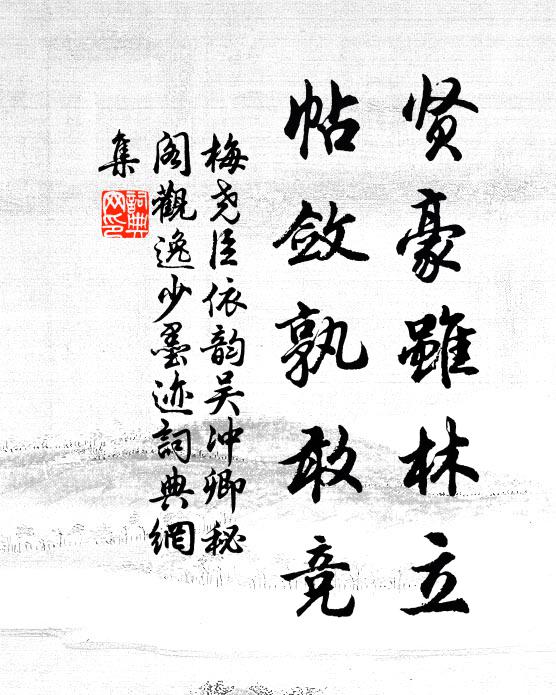 贤豪雖林立
帖敛孰敢竞
梅尧臣依韵吴沖卿秘
阁觀逸少墨迹詞典網
集
詞典
网印